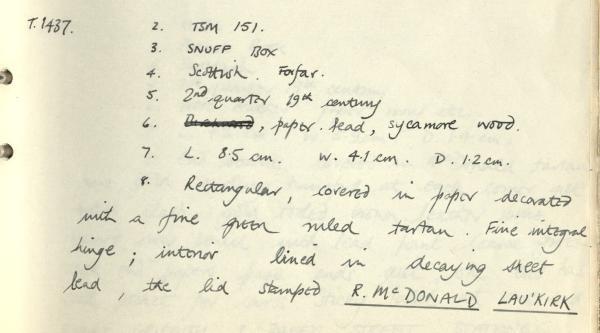 T.1437. 2. TSM 151.
3. SNUFF BOX
4. Scottish. Forfar.
5. 2nd quarter 19th century
6. Birchwood, paper. lead, sycamore wood.
7. L. 8.5 cm. W. 4.1 cm. D. 1.2 cm.
8. Rectangular, covered in paper decorated
with a fine green ruled tartan. Fine integral
hinge; interior lined in decaying sheet
lead, the lid stamped R. McDONALD LAU'KIRK